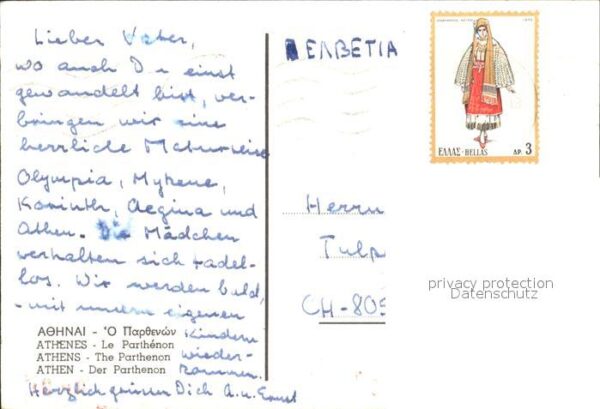 Lieber Vater,
wo auch Du einst
gewandelt bist, ver-
bringen wir eine
herrliche Maturreise
Olympia, Mykene,
Korinth, Aegina und
Athen. Die Mädchen
verhalten sich tadel-
los. Wir werden bald,
- mit unsern eigenen
Kindern
wieder-
kommen.
Herzlich grüssen Dich A. u. Ernst
ΑΘΗΝΑΙ - Ὁ Παρθενών
ATHENES - Le Parthénon
ATHENS - The Parthenon
ATHEN - Der Parthenon
ΕΛΒΕΤΙΑ
ΕΛΛΑΣ-HELLAS ΔΡ. 3
Herrn
Tulp
CH-805
privacy protection
Datenschutz